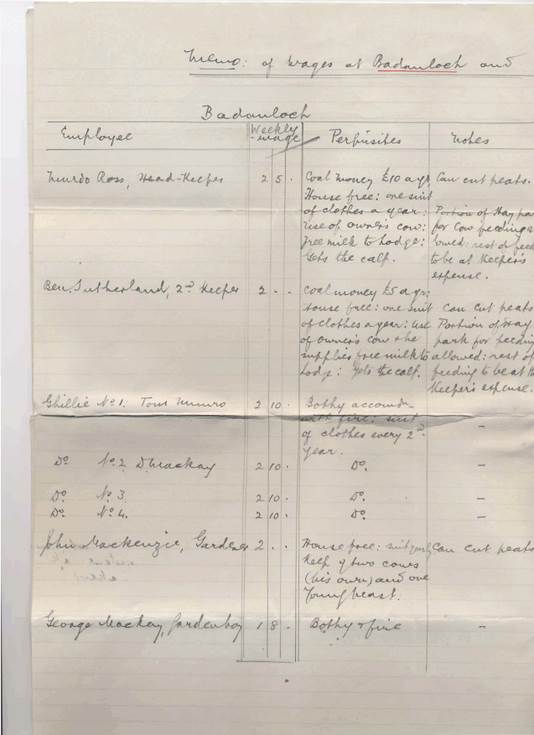 Memo: of Wages at Badanloch and
Badanloch
Employee Weekly wage Perquisites Notes
Murdo Ross, Head-Keeper 2 5 . Coal money £10 a yr, Can cut peats.
House free: one suit
of clothes a year: Portion of Hay par
use of owner's cow: for cow feeding
free milk to Lodge: lowed: rest of feed
Gets the calf. to be at Keeper's
expense.
Ben. Sutherland, 2nd Keeper 2 . . Coal money £5 a yr:
House free: one suit Can cut peats
of clothes a year: use Portion of Hay
of owner's cow & he park for feeding
supplies free milk to allowed: rest of
Lodge: Gets the calf. feeding to be at the
Keeper's expense.
Ghillie No 1: Tom Munro 2 10 . Bothy accomdn
with fire: suit
of clothes every 2nd –
year.
Do No 2 D. Mackay 2 10 . Do. –
Do No 3. 2 10 . Do. –
Do No 4. 2 10 . Do. –
John Mackenzie, Gardener 2 . . House free: suit Can cut peats
Keep of two cows
(his own) and one
Young beast.
George Mackay, Gardenboy 1 8 . Bothy & fire –